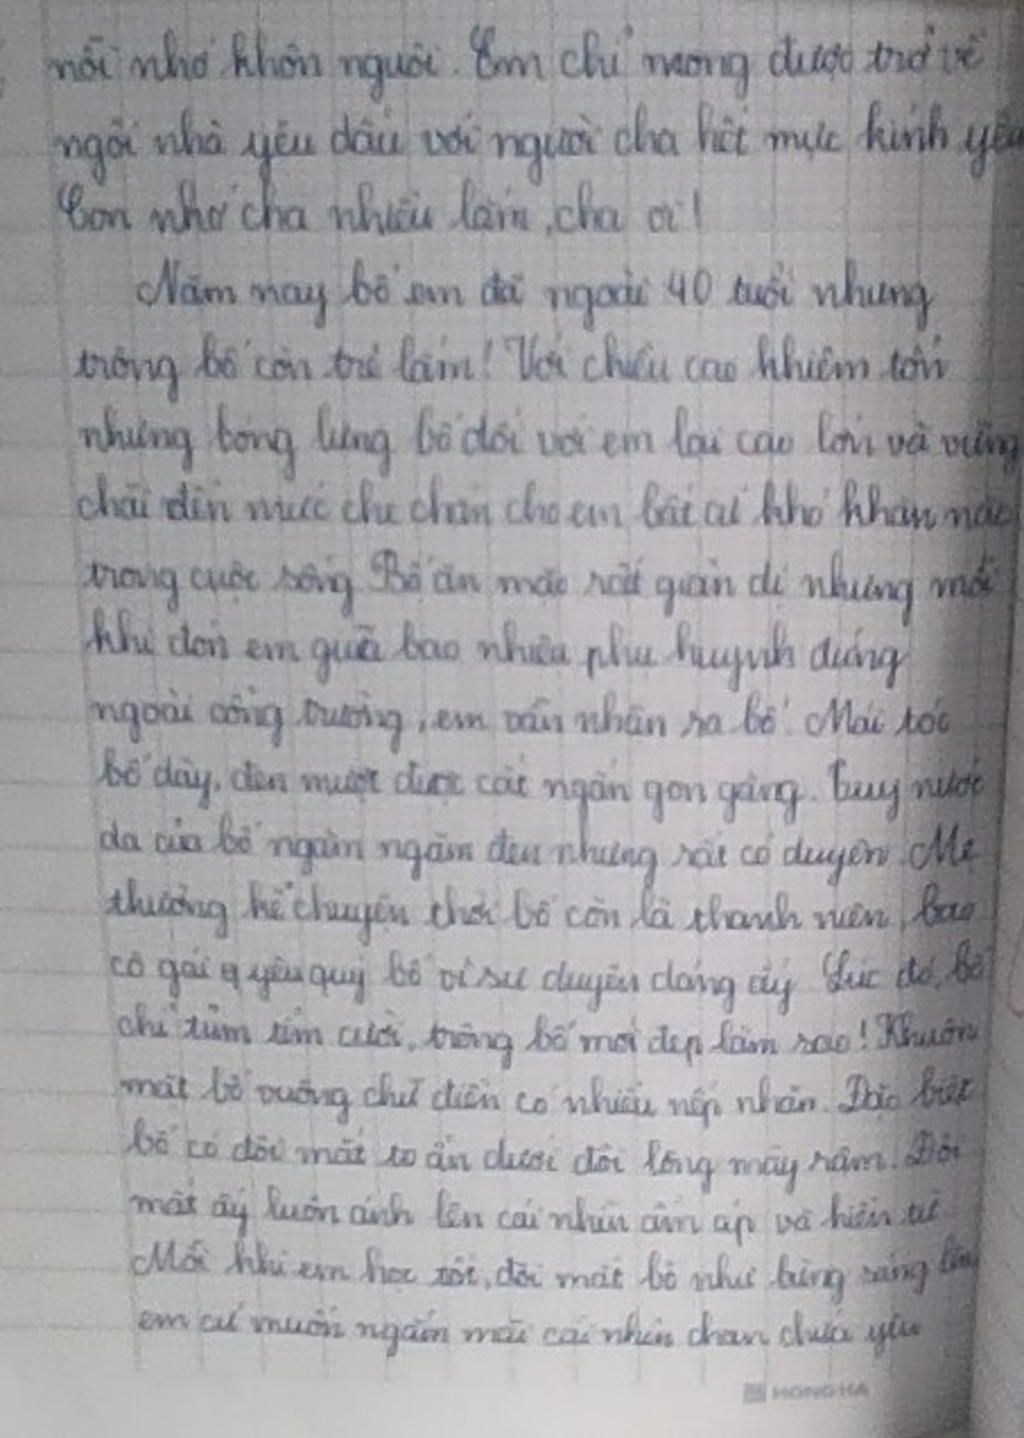 nỗi nhớ khôn nguôi. Em chỉ mong được trở về
ngôi nhà yêu dấu với người cha hết mực kính yêu
Con nhớ cha nhiều lắm, cha ơi!
Năm nay bố em đã ngoài 40 tuổi nhưng
trông bố còn trẻ lắm! Với chiều cao khiêm tốn
nhưng bóng lưng bố đối với em lại cao lớn và vững
chãi đến mức che chắn cho em bất cứ khó khăn nào
trong cuộc sống. Bố ăn mặc rất giản dị nhưng mỗi
khi đón em giữa bao nhiêu phụ huynh đứng
ngoài cổng trường, em vẫn nhận ra bố. Mái tóc
bố dày, đen mượt được cắt ngắn gọn gàng. Tuy nước
da của bố ngăm ngăm đen nhưng rất có duyên. Mẹ
thường kể chuyện thời bố còn là thanh niên, bao
cô gái yêu quý bố vì sự duyên dáng ấy. Lúc đó, bố
chỉ tủm tỉm cười, trông bố mới đẹp làm sao! Khuôn
mặt bố vuông chữ điền có nhiều nếp nhăn. Đặc biệt
bố có đôi mắt to ẩn dưới đôi lông mày rậm. Đôi
mắt ấy luôn ánh lên cái nhìn ấm áp và hiền từ
Mỗi khi em học tốt, đôi mắt bố như bừng sáng lên
em cứ muốn ngắm mãi cái nhìn chan chứa yêu
HONG HA